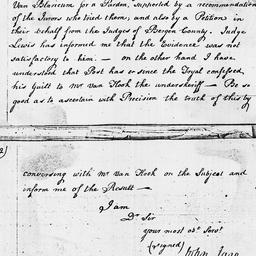 Van Blarecum for a Pardon, supported by a recommendation
of the Jurors who tried them; and also by a Petitions in
their behalf from the Judges of Bergen County. Judge
Lewis has informed me that the Evidence was not
satisfactory to him. — on the other hand I have
understood that Post has or since the Tryal confessed
his Guilt to Mr Van Hook the undersheriff — Be so
good as to ascertain with Precision the truth of this by
2)
conversing with Mr Van Hook on the Subject and
inform me of the Result —
I am
Dr Sir
your most obt Servt
(signed) John Jay